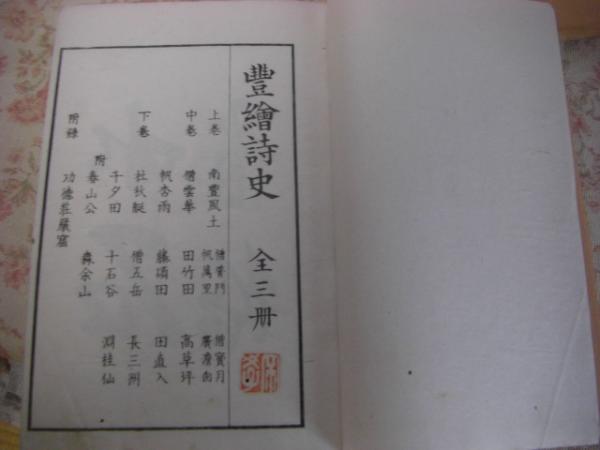 豐繪詩史 全三册
上卷 南豐風土 僧普門 僧寶月
帆萬里 廣瀨向
中卷 僧雲華 田竹田 高草坪
帆杏雨 藤碩田 田直入
下卷 杜秋艇 僧五岳 長三洲
千夕田 十石谷 淵桂仙
附 春山公 森余山
附錄 功德莊嚴窟